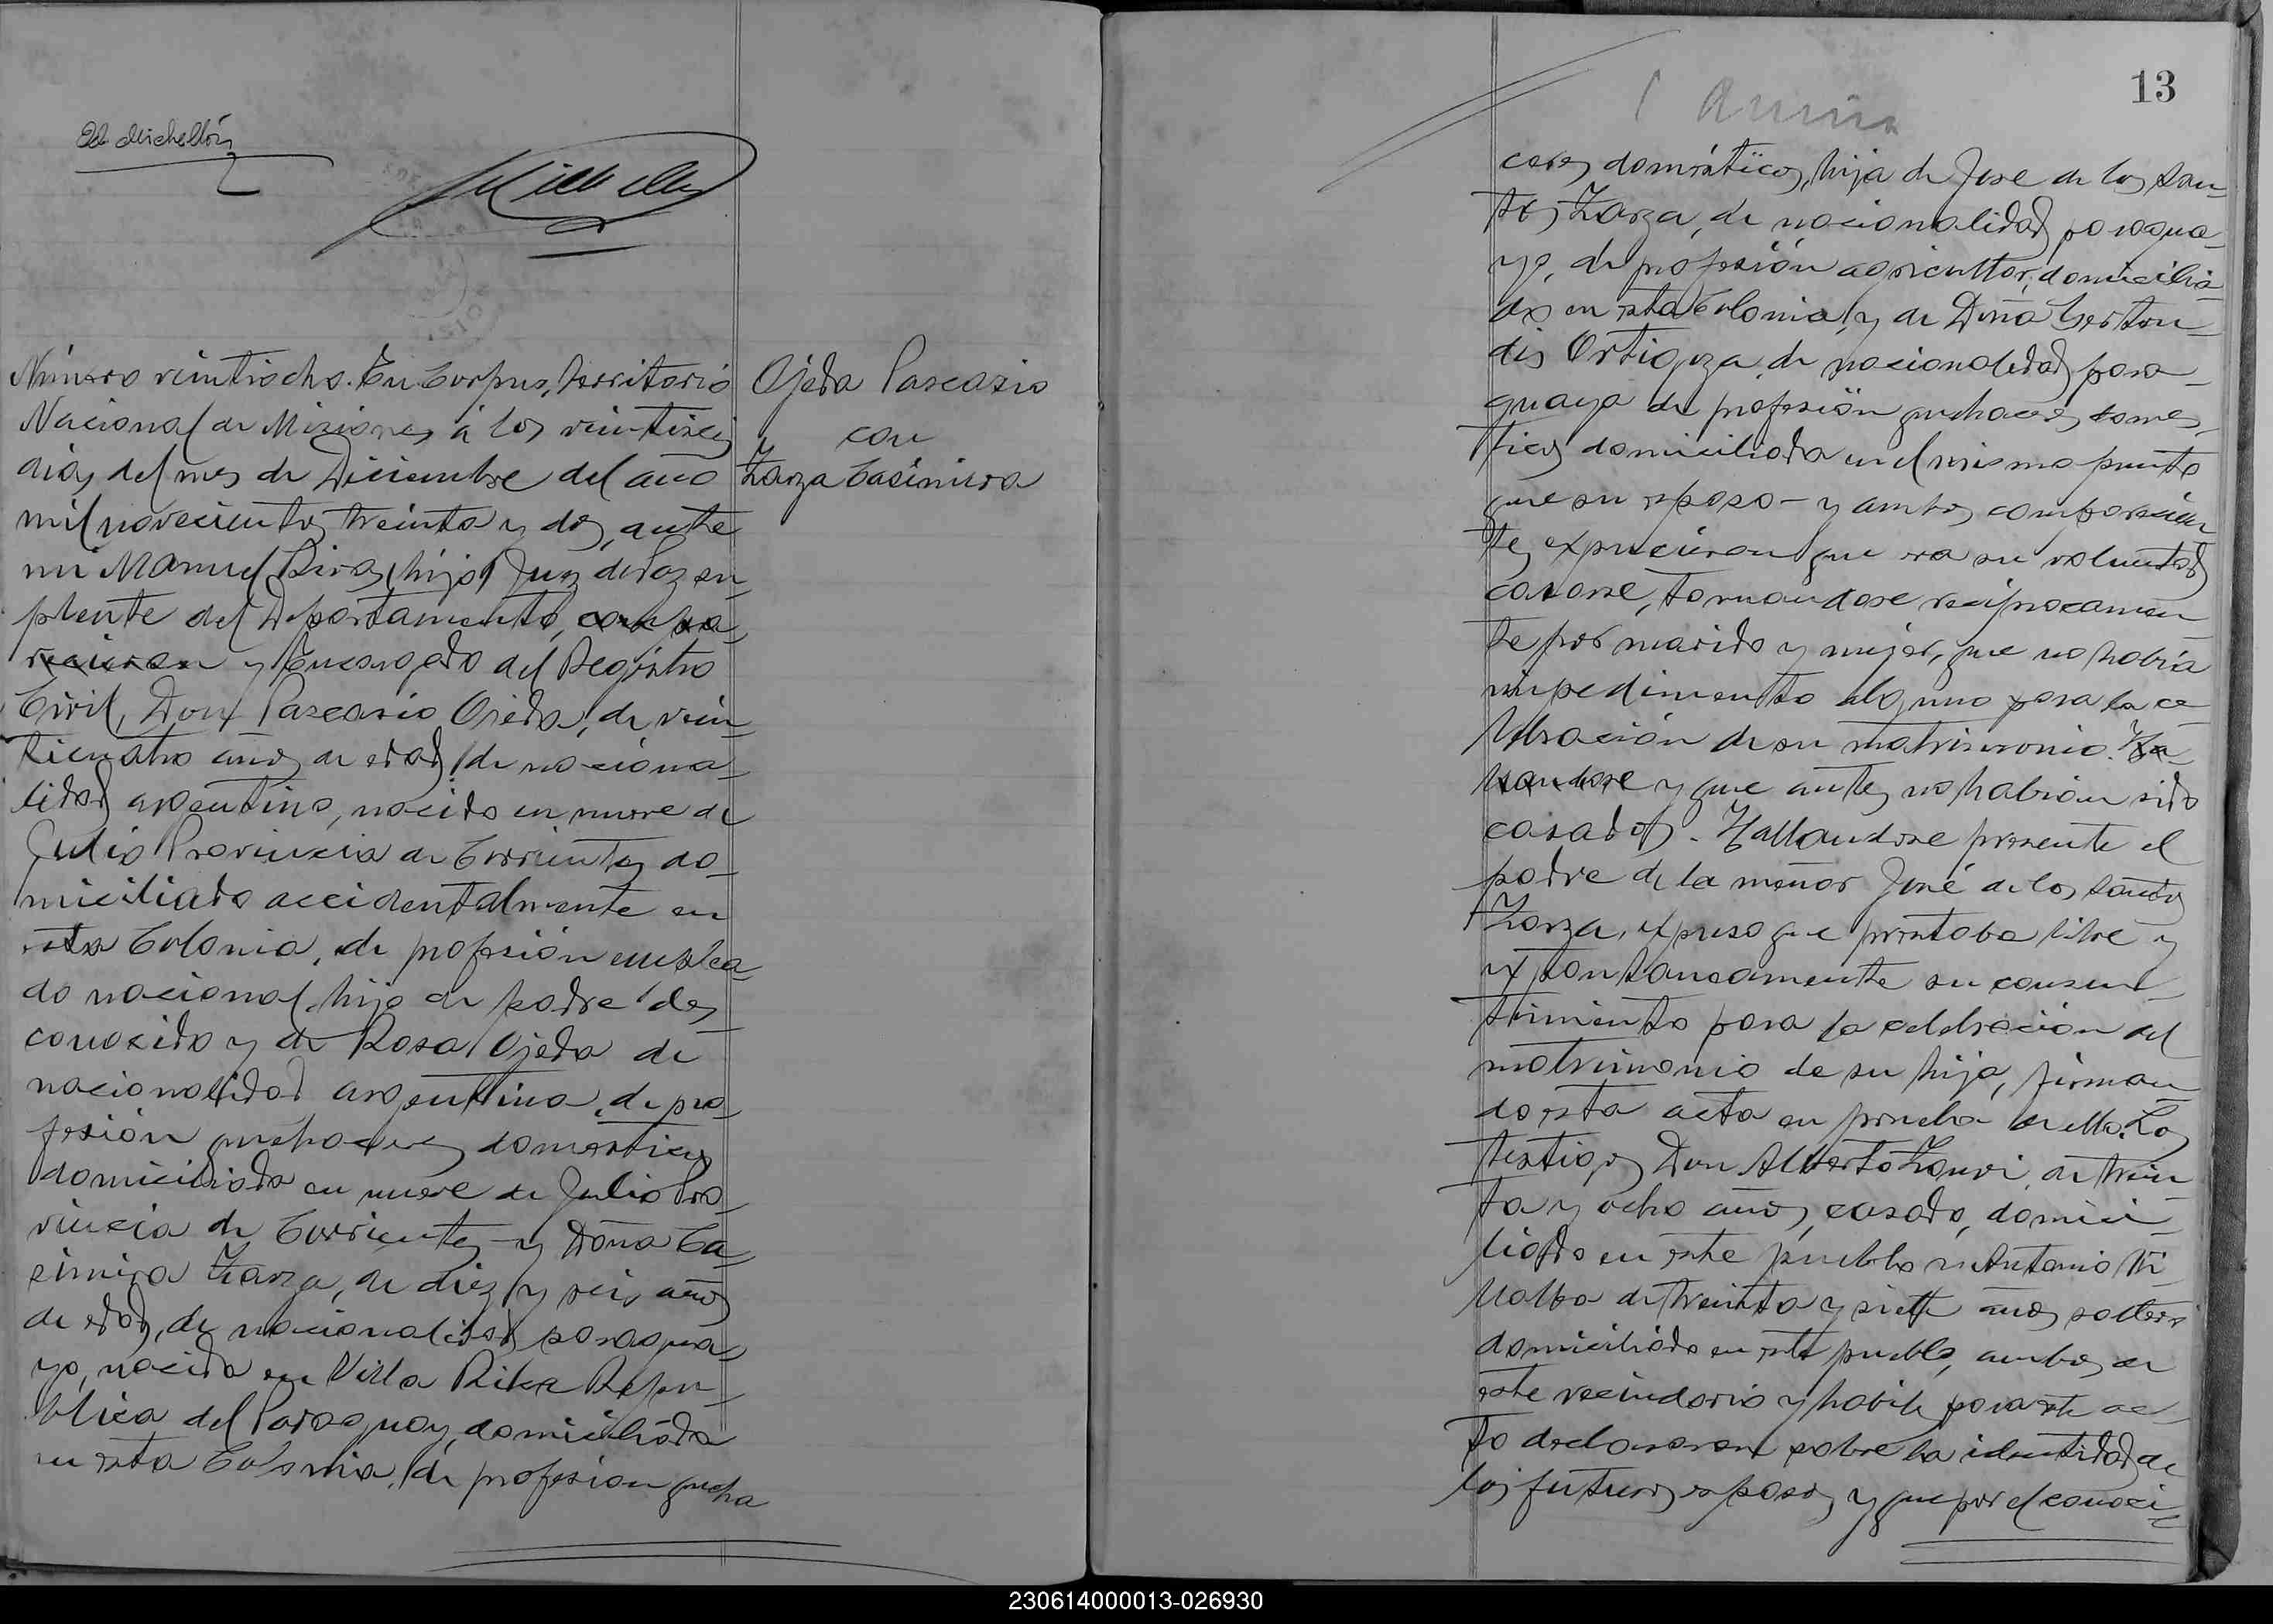 Ed. Michellón
Número veintiocho. En Corpus, Territorio
Nacional de Misiones á los veintiseis
días del mes de Diciembre del año
mil novecientos treinta y dos, ante
mi Manuel Rivas, (hijo) Juez de Paz su-
plente del Departamento, compa-
recieron y Encargado del Registro
Civil, Don Pascasio Ojeda, de vein-
ticuatro años de edad, de naciona-
lidad argentino, nacido en nueve de
Julio Provincia de Corrientes do-
miciliado accidentalmente en
esta Colonia, de profesión emplea-
do nacional, hijo de padre des-
conocido y de Rosa Ojeda de
nacionalidad argentina, de pro-
fesión quehaceres domesticos
domiciliada en nueve de Julio Pro-
vincia de Corrientes - y Doña Ca-
simira Zarza, de diez y seis años
de edad, de nacionalidad paragua-
ya, nacida en Villa Rika Repu-
blica del Paraguay, domiciliada
en esta Colonia, de profesion queha
Ojeda Pascasio
con
Zarza Casimira
13
ceres domésticos, hija de Jose de los San-
tos Zarza, de nacionalidad paragua-
yo, de profesión agricultor, domicilia-
do en esta Colonia, y de Doña Gertru-
dis Ortigoza, de nacionalidad para-
guaya de profesión quehaceres domes-
ticos domiciliada en el mismo punto
que su esposo - y ambos comparecien
tes expucieron que era su voluntad
casarse, tomandose reciprocamen-
te por marido y mujer, que no habia
impedimento alguno para la ce-
lebración de su matrimonio. Ha-
llandose y que antes no habian sido
casados. - Hallandose presente el
padre de la menor José de los Santos
Zarza, expreso que prestaba libre y
expontaneamente su consen-
timiento para la celebracion del
matrimonio de su hija, firman-
do esta acta en prueba de ello. Los
testigos Don Alberto Zouvi, de trein-
ta y ocho años, casado, domici-
liado en este pueblo y Antonio Vi-
llalba de treinta y siete años soltero
domiciliado en este pueblo, ambos de
este vecindario y habiles para este ac-
to declararon sobre la identidad de
los futuros esposos y que por el conoci-
230614000013-026930